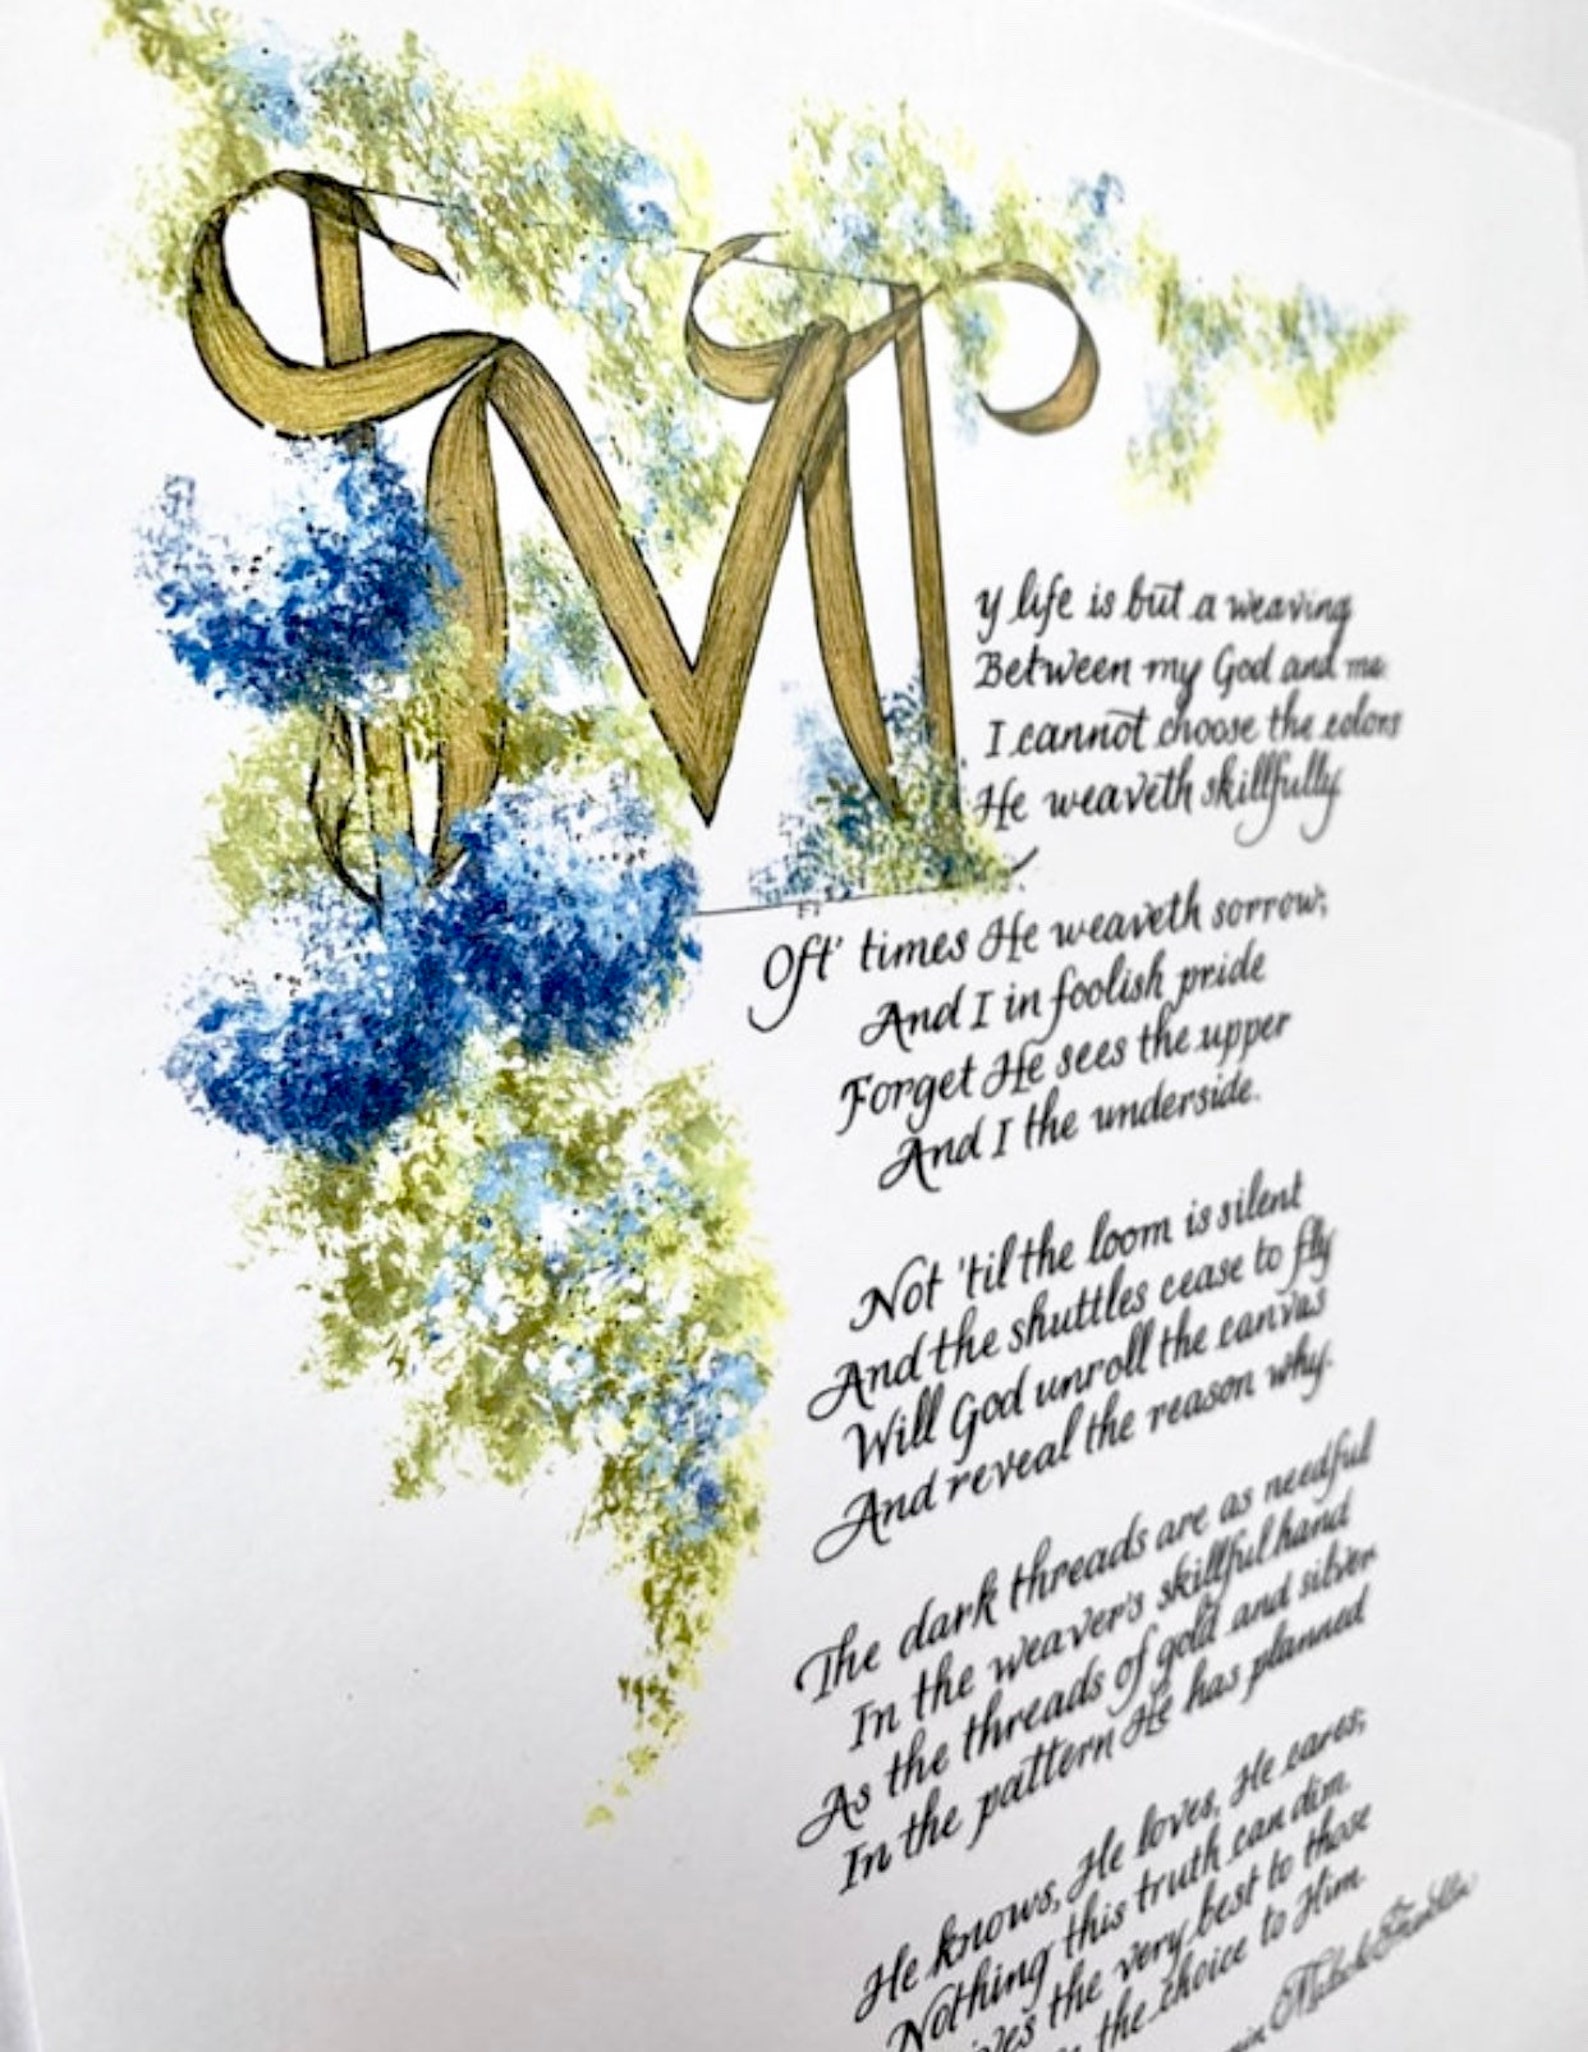 My life is but a weaving
Between my God and me
I cannot choose the colors
He weaveth skillfully
Oft' times He weaveth sorrow;
And I in foolish pride
Forget He sees the upper
And I the underside.
Not 'til the loom is silent
And the shuttles cease to fly
Will God unroll the canvas
And reveal the reason why.
The dark threads are as needful
In the weaver's skillful hand
As the threads of gold and silver
In the pattern He has planned
He knows, He loves, He cares;
Nothing this truth can dim.
the very best to those
the choice to Him.